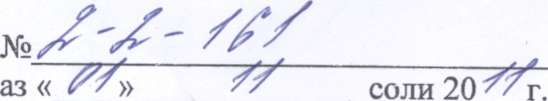 № 2-2-161
аз « 01 » 11 соли 2011 г.